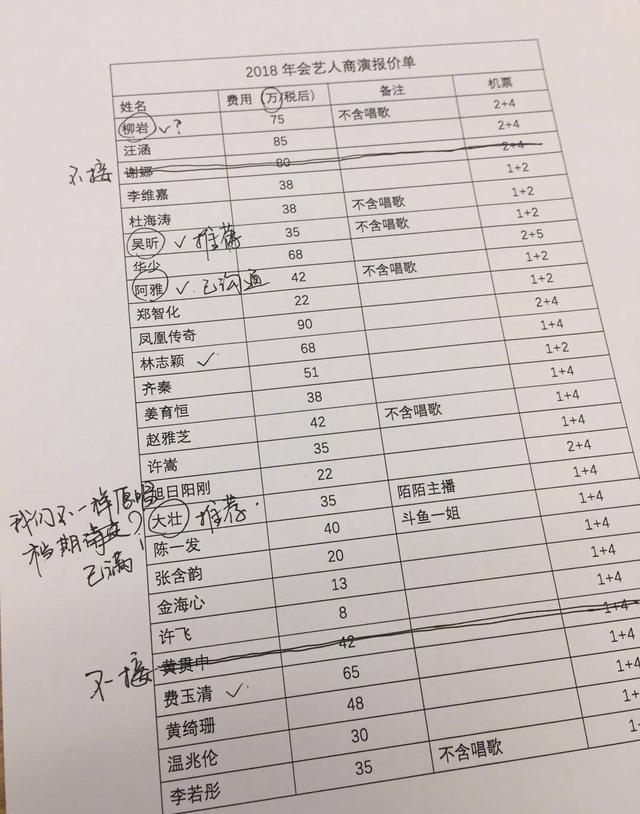 2018 年会艺人商演报价单
姓名 费用 万(税后) 备注 机票
柳岩 ✓? 75 不含唱歌 2+4
汪涵 85 2+4
不接 谢娜 80 2+4
李维嘉 38 1+2
杜海涛 38 不含唱歌 1+2
吴昕 ✓ 推荐 35 不含唱歌 1+2
华少 68 2+5
阿雅 ✓ 已沟通 42 不含唱歌 1+2
郑智化 22 1+2
凤凰传奇 90 2+4
林志颖 ✓ 68 1+4
齐秦 51 1+2
姜育恒 38 1+4
赵雅芝 42 不含唱歌 1+4
许嵩 35 1+4
旭日阳刚 22 2+4
我们不一样原唱
档期待定?
已满!
大壮 推荐 35 陌陌主播 1+4
陈一发 40 斗鱼一姐 1+4
张含韵 20 1+4
金海心 13 1+4
许飞 8 1+4
不接 黄贯中 42 1+4
费玉清 ✓ 65 1+4
黄绮珊 48 1+4
温兆伦 30 1+4
李若彤 35 不含唱歌